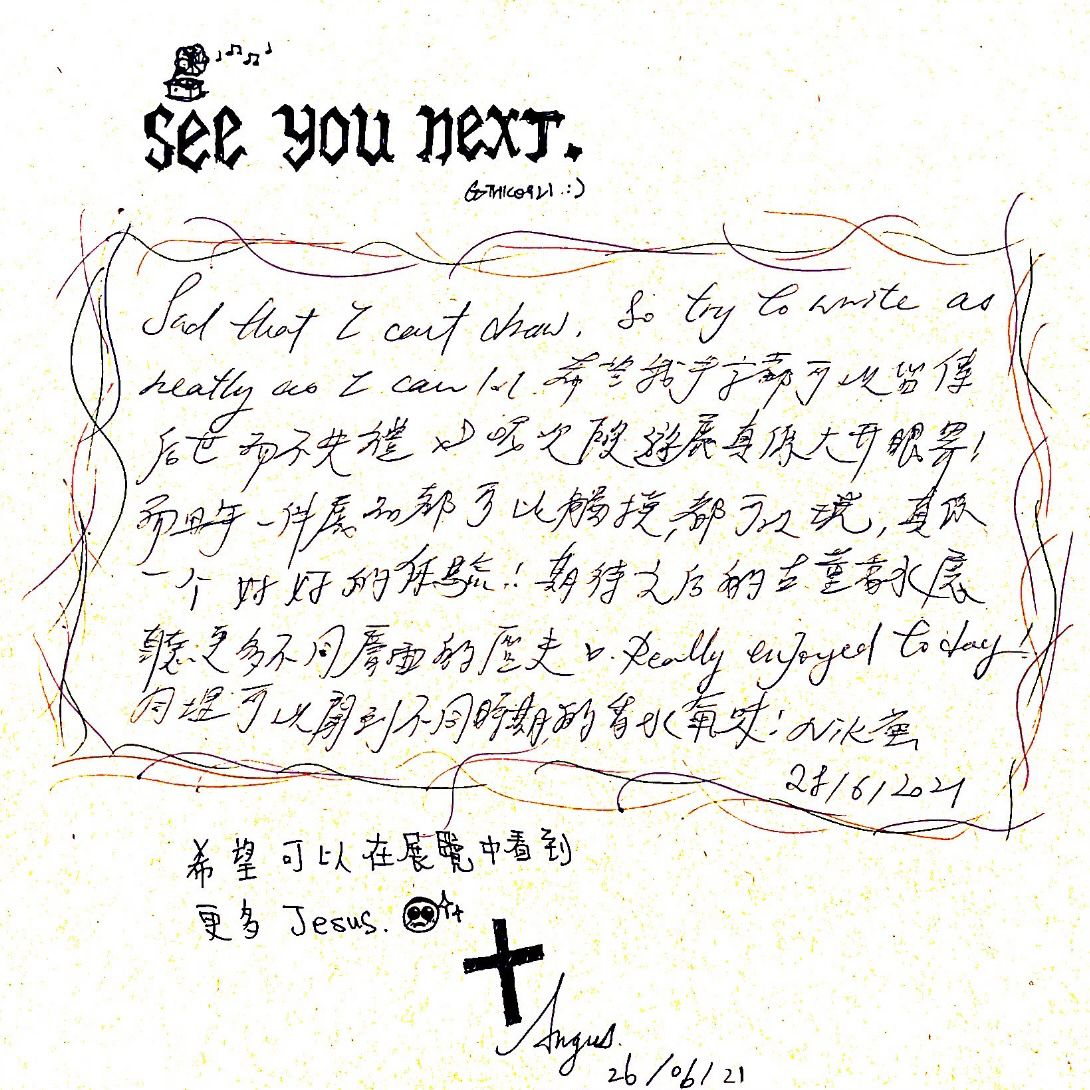 See you next.
GOTHIC0921 :)
Sad that I can't draw. So try to write as
neatly as I can lol. 希望我手字都可以留傳
后世而不失禮 xD 呢次殷遊展真係大开眼界！
而且每一件展品都可以觸摸，都可以現，真係
一个好好的体驗！期待之后的古董香水展
聽更多不同摩西的歷史 Really enjoyed today!
同埋可以聞到不同時期的香水氣味！Nik
28/6/2021
希望可以在展覽中看到
更多 Jesus.
Angus.
26/06/21